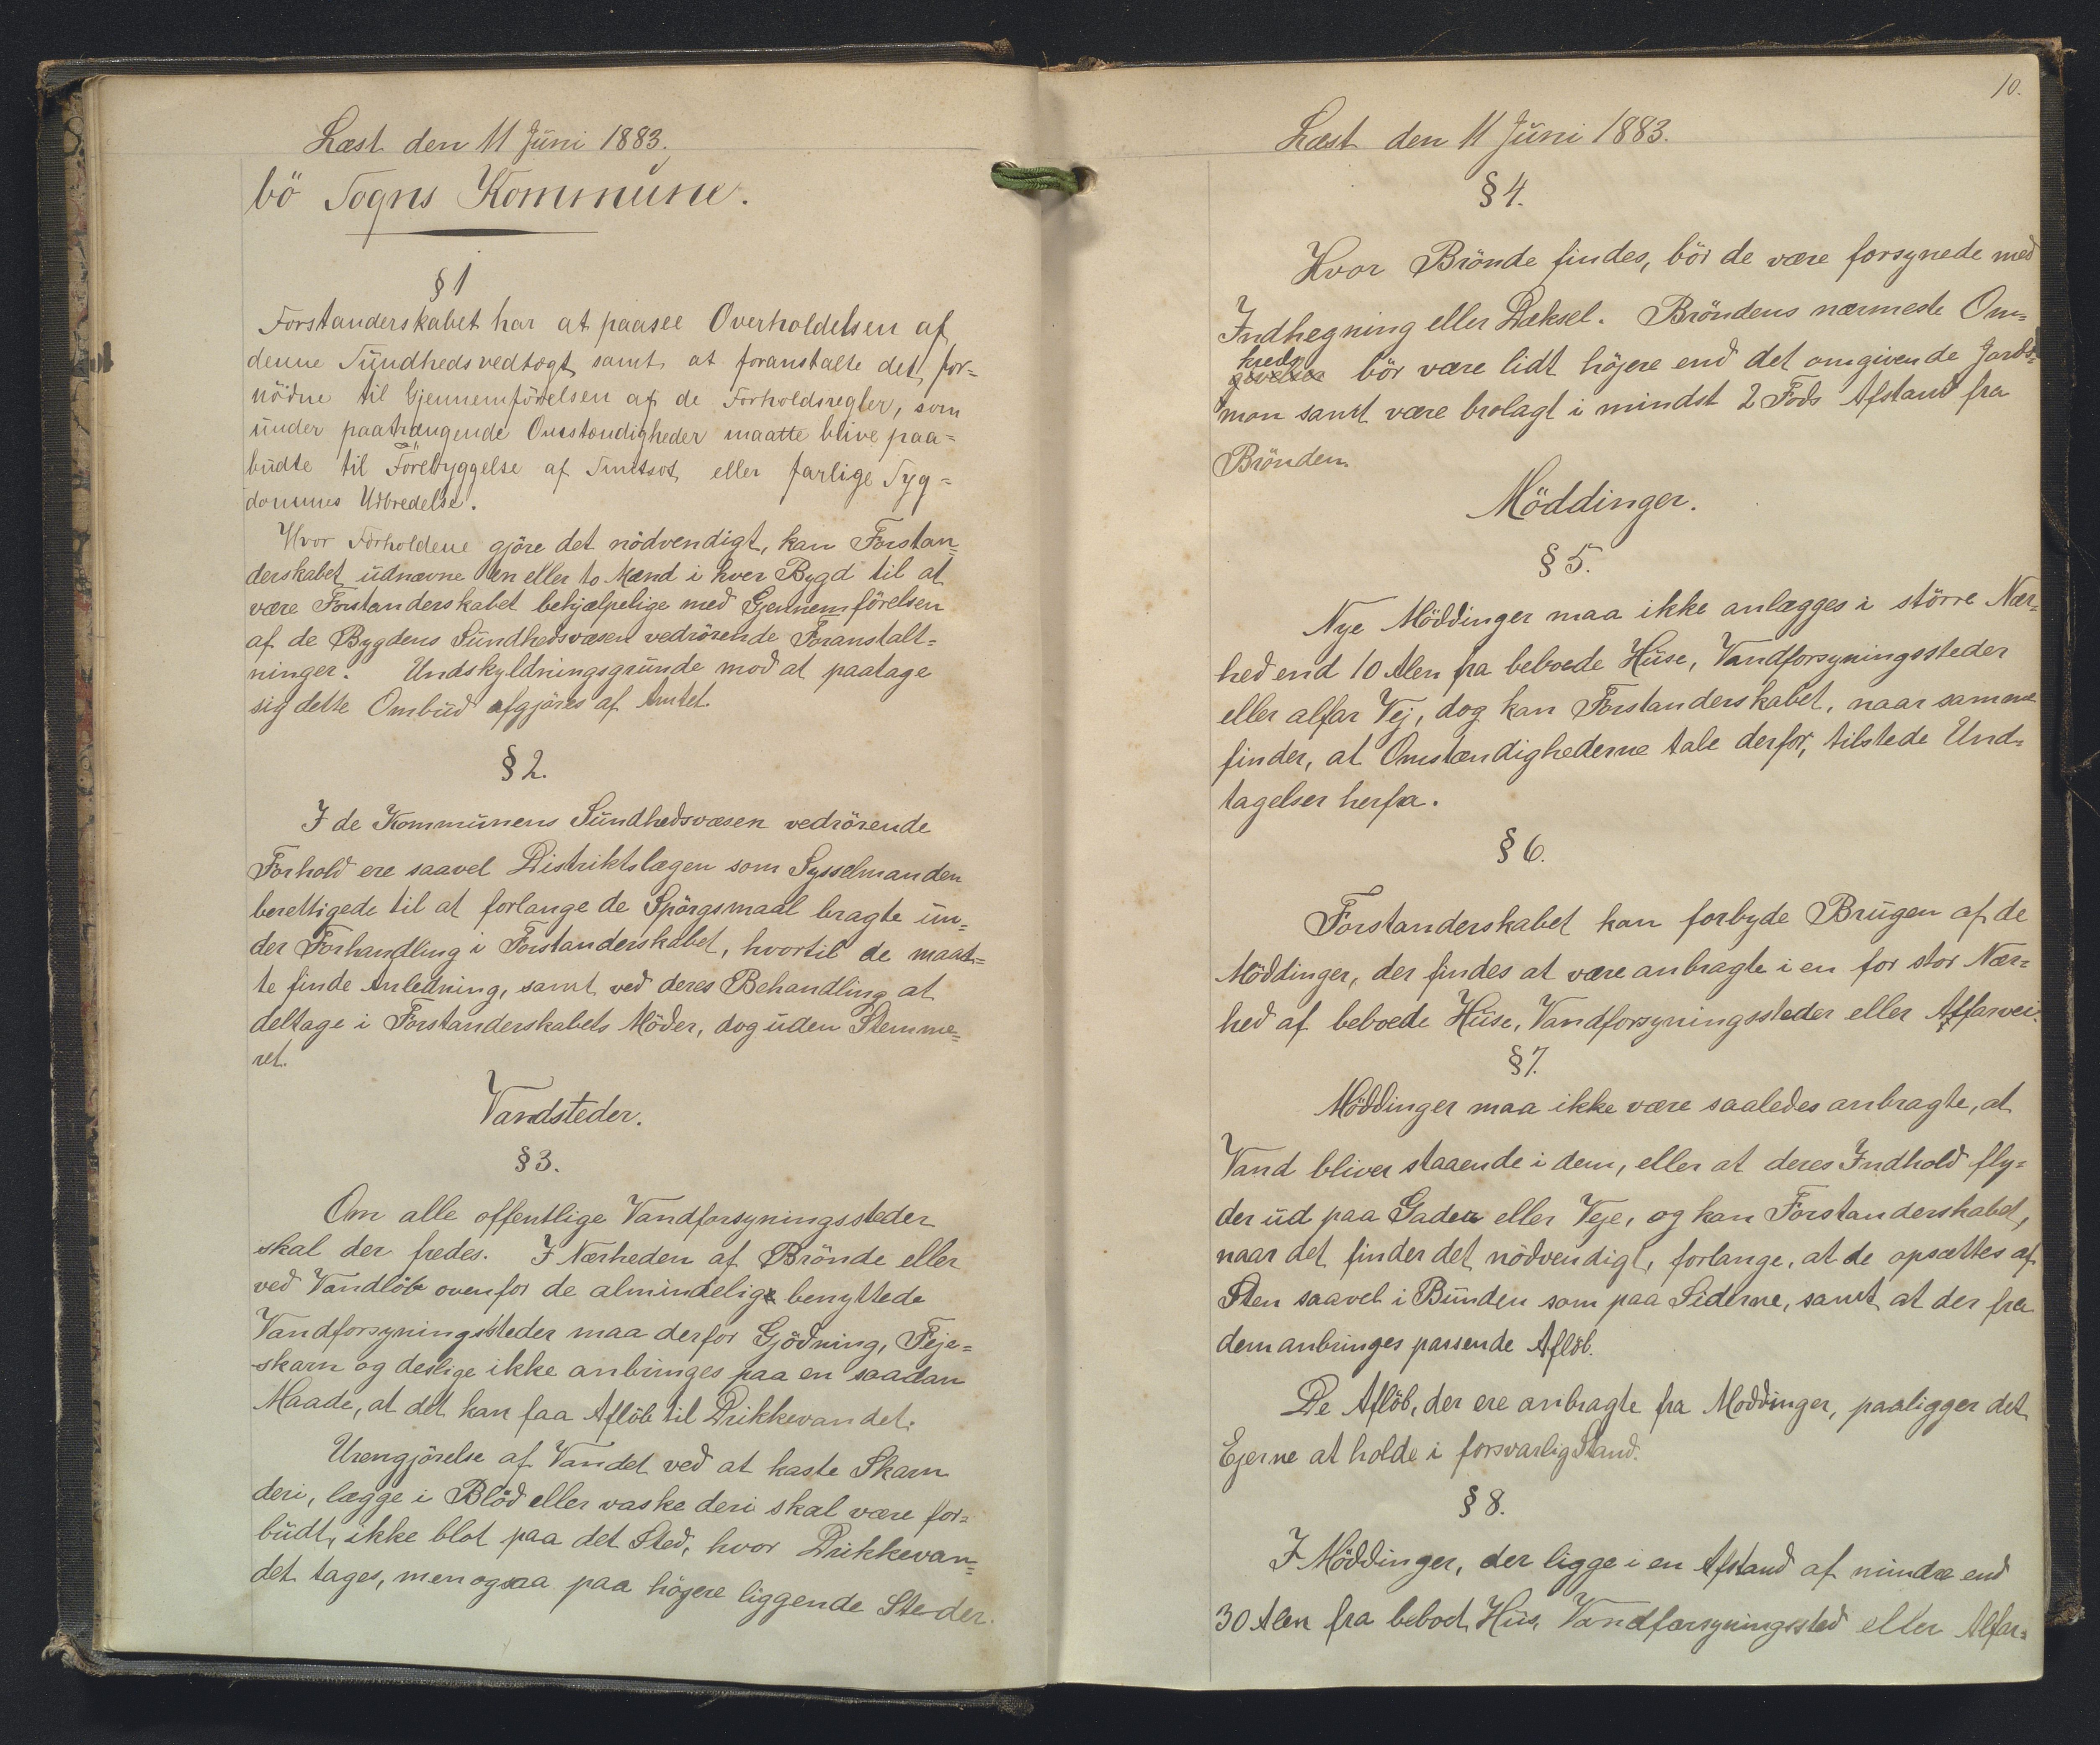 Læst den 11 Jŭni 1883.
bö Sogns Kommŭne.
§ 1
Forstanderskabet har at paasee Overholdelsen af
denne Sŭndhedsvedtægt samt at foranstalte det for=
nödne til Gjennemförelsen af de Forholdsregler, som
ŭnder paatrængende Omstændigheder maatte blive paa=
bŭdte til Forebyggelse af Smitsot eller farlige Syg=
dommes Udbredelse.
Hvor Forholdene gjöre det nödvendigt, kan Forstan=
derskabet ŭdnævne en eller to Mænd i hver Bygd til at
være Forstanderskabet behjælpelige med Gjennemförelsen
af de Bygdens Sŭndhedsvæsen vedrörende Foranstalt=
ninger. Undskyldningsgrŭnde mod at paatage
sig dette Ombŭd afgjöres af Amtet.
§ 2.
I de Kommŭnens Sŭndhedsvæsen vedrörende
Forhold ere saavel Distriktslægen som Sysselmanden
berettigede til at forlange de Spörgsmaal bragte ŭn=
der Forhandling i Forstanderskabet, hvortil de maat=
te finde Anledning, samt ved deres Behandling at
deltage i Forstanderskabets Möder, dog ŭden Stemme=
ret.
Vandsteder.
§ 3.
Om alle offentlige Vandforsyningssteder
skal der fredes. I Nærheden af Brönde eller
ved Vandlöb ovenfor de almindelige benyttede
Vandforsyningssteder maa derfor Gjödning, Feje=
skarn og deslige ikke anbringes paa en saadan
Maade, at det kan faa Aflöb til Drikkevandet.
Urengjörelse af Vandet ved at kaste Skarn
deri, lægge i Blöd eller vaske deri skal være for=
bŭdt, ikke blot paa det Sted, hvor Drikkevan=
det tages, men ogsaa paa höjere liggende Steder.
10.
Læst den 11 Jŭni 1883.
§ 4.
Hvor Brönde findes, bör de være forsynede med
Indhegning eller Dæksel. Bröndens nærmeste Om=
kreds
givelser bör være lidt höjere end det omgivende Jords=
mon samt være brolagt i mindst 2 Fods Afstand fra
Brönden.
Möddinger.
§ 5.
Nye Möddinger maa ikke anlægges i större Nær=
hed end 10 Alen fra beboede Hŭse, Vandforsyningssteder
eller alfar Vej, dog kan Forstanderskabet, naar samme
finder, at Omstændighederne tale derfor, tilstede Und=
tagelser herfra.
§ 6.
Forstanderskabet kan forbyde Brŭgen af de
Möddinger, der findes at være anbragte i en for stor Nær=
hed af beboede Hŭse, Vandforsyningssteder eller Alfarvei.
§ 7.
Möddinger maa ikke være saaledes anbragte, at
Vand bliver staaende i dem, eller at deres Indhold fly=
der ŭd paa Gader eller Veje, og kan Forstanderskabet,
naar det finder det nödvendigt, forlange, at de opsættes af
Sten saavel i Bŭnden som paa Siderne, samt at der fra
dem anbringes passende Aflöb.
De Aflöb, der ere anbragte fra Möddinger, paaligger det
Ejerne at holde i forsvarlig Stand.
§ 8.
I Möddinger, der ligge i en Afstand af mindre end
30 Alen fra beboet Hŭs, Vandforsyningssted eller Alfar=